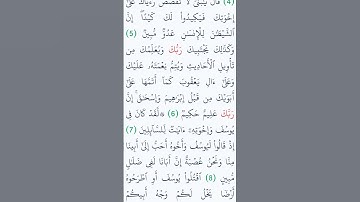 (4) قَالَ يَٰبُنَيَّ لَا تَقۡصُصۡ رُءۡيَاكَ عَلَىٰٓ
إِخۡوَتِكَ فَيَكِيدُواْ لَكَ كَيۡدًاۖ إِنَّ
ٱلشَّيۡطَٰنَ لِلۡإِنسَٰنِ عَدُوّٞ مُّبِينٞ (5)
وَكَذَٰلِكَ يَجۡتَبِيكَ رَبُّكَ وَيُعَلِّمُكَ مِن
تَأۡوِيلِ ٱلۡأَحَادِيثِ وَيُتِمُّ نِعۡمَتَهُۥ عَلَيۡكَ
وَعَلَىٰٓ ءَالِ يَعۡقُوبَ كَمَآ أَتَمَّهَا عَلَىٰٓ
أَبَوَيۡكَ مِن قَبۡلُ إِبۡرَٰهِيمَ وَإِسۡحَٰقَۚ إِنَّ
رَبَّكَ عَلِيمٌ حَكِيمٞ (6) ۞لَّقَدۡ كَانَ فِي
يُوسُفَ وَإِخۡوَتِهِۦٓ ءَايَٰتٞ لِّلسَّآئِلِينَ (7)
إِذۡ قَالُواْ لَيُوسُفُ وَأَخُوهُ أَحَبُّ إِلَىٰٓ أَبِينَا
مِنَّا وَنَحۡنُ عُصۡبَةٌ إِنَّ أَبَانَا لَفِي ضَلَٰلٖ
مُّبِينٍ (8) ٱقۡتُلُواْ يُوسُفَ أَوِ ٱطۡرَحُوهُ
أَرۡضٗا يَخۡلُ لَكُمۡ وَجۡهُ أَبِيكُمۡ